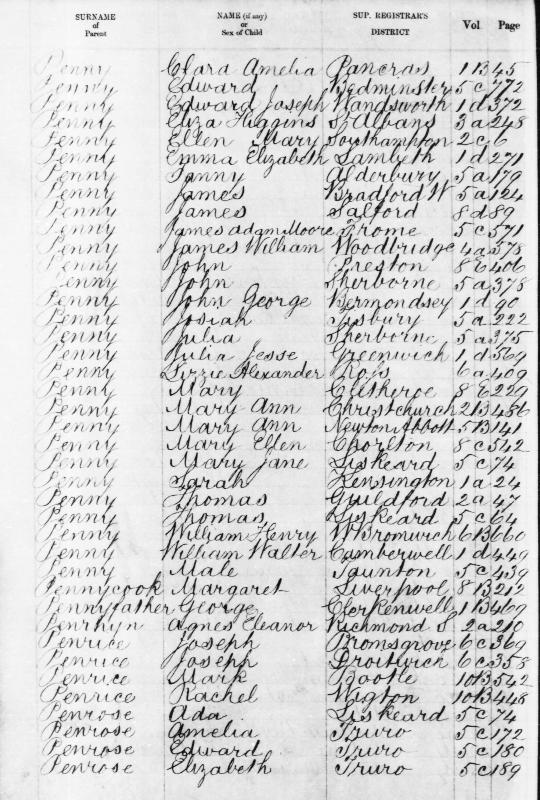 SURNAME of Parent NAME (if any) or Sex of Child SUP. REGISTRAR'S DISTRICT Vol Page
Penny Clara Amelia Pancras 1 B 45
Penny Edward Bedminster 5 c 772
Penny Edward Joseph Wandsworth 1 d 372
Penny Eliza Higgins St Albans 3 a 248
Penny Ellen Mary Southampton 2 c 6
Penny Emma Elizabeth Lambeth 1 d 271
Penny Fanny Alderbury 5 a 179
Penny James Bradford W 5 a 124
Penny James Salford 8 d 89
Penny James Adam Moore Frome 5 c 571
Penny James William Woodbridge 4 a 578
Penny John Preston 8 E 406
Penny John Sherborne 5 a 378
Penny John George Bermondsey 1 d 90
Penny Josiah Tisbury 5 a 222
Penny Julia Sherborne 5 a 375
Penny Julia Jesse Greenwich 1 d 569
Penny Lizzie Alexander 6 a 409
Penny Mary Clitheroe 8 E 229
Penny Mary Ann Christchurch 2 B 486
Penny Mary Ann Newton Abbott 5 B 141
Penny Mary Ellen Chorlton 8 c 542
Penny Mary Jane Liskeard 5 c 74
Penny Sarah Kensington 1 a 24
Penny Thomas Guildford 2 a 47
Penny Thomas Liskeard 5 c 64
Penny William Henry W Bromwich 6 B 660
Penny William Walter Camberwell 1 d 449
Penny Male Taunton 5 c 439
Pennycook Margaret Liverpool 8 B 212
Pennyfather George Clerkenwell 1 B 469
Penrhyn Agnes Eleanor Richmond S 2 a 210
Penrice Joseph Bromsgrove 6 c 369
Penrice Joseph Droitwich 6 c 358
Penrice Mark Bootle 10 B 542
Penrice Rachel Wigton 10 B 448
Penrose Ada Liskeard 5 c 74
Penrose Amelia Truro 5 c 172
Penrose Edward Truro 5 c 180
Penrose Elizabeth Truro 5 c 189